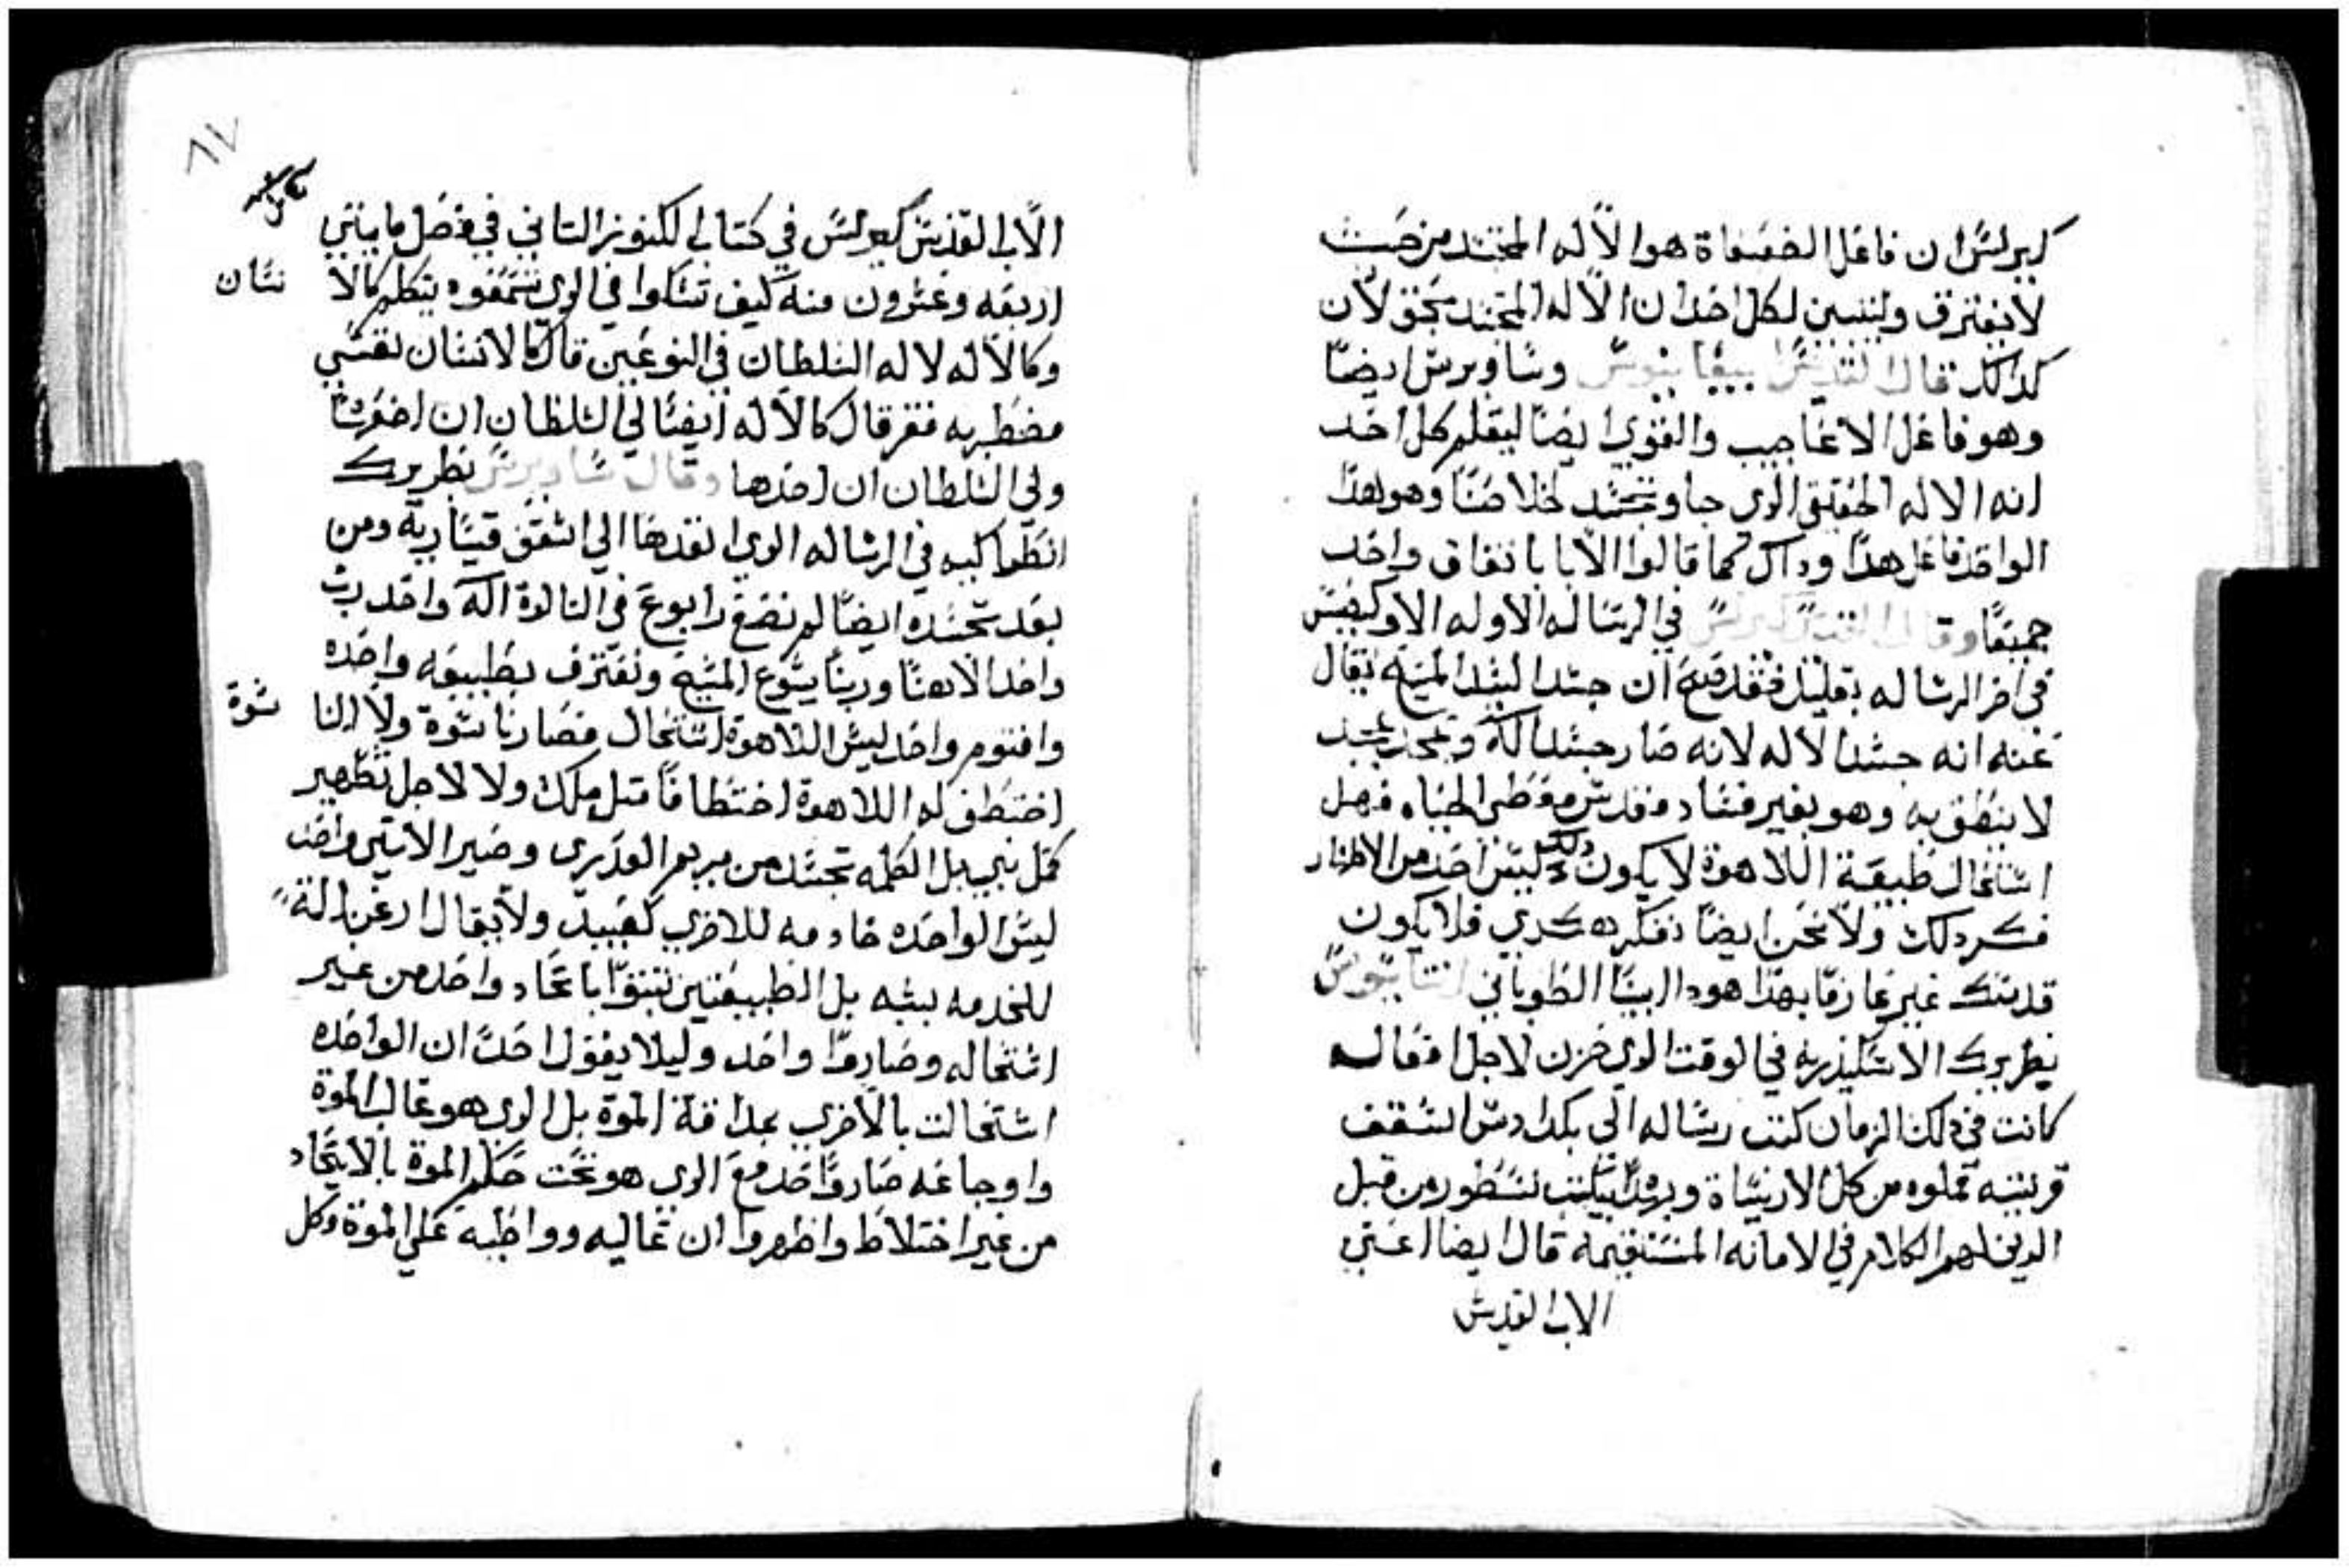 كيرلس ان فاعل الضعفاة هو الاله المتجسد من حيث
لا نفترق ولنبين لكل احد ان الاله المتجسد محق لان
كذلك قال القديس وساويرس ايضا
وهو فاعل الاعاجيب والقوي ايضا ليعلم كل احد
انه الاله الحقيقي الدي جا وتجسد لخلاصنا وهو لهدا
الواحد فاعل هدا وداك كما قالوا الابا باتفاق واحد
جميعا وقال القديس كيرلس في الرساله الاوله الاوكيفيس
في اخر الرساله بقليل فقد صح ان جسد السيد المسيح يقال
عنه انه جسد الاله لانه صار جسد اله وتمجد بمجد
لا ينطق به وهو بغير فساد مقدس معطي الحياه فهل
استحال طبيعة اللاهوة لا يكون دلك وليس احد من الاطهار
فكر دلك ولا نحن ايضا نفكر هكدي فلا يكون
قدسك غير عارفا بهدا هودا ابينا الطوباني اتناسيوس
بطريرك الاسكندريه في الوقت الدي حزن لاجل افعال
كانت في دلك الزمان كتب رساله الي اسقف
قرنيته مملوه من كل الارتساة وبرهدا بيكت نسطور من قبل
الدين لهم الكلام في الامانه المستقيمة قال ايضا اعني
الاب القديس
٨٧
الاب القديس كيرلس في كتاب الكنوز التاني في فصل مايتي
اربعه وعشرون منه كيف تشكوا في الدي تسمعوه يتكلم كالا نسان
وكالاله لاله السلطان في النوعين قال كالانسان نفسي
مضطربه فقر قال كالاله ايضا لي السلطان ان اضعها
ولي السلطان ان اخدها وقال ساويرس بطريرك
انطواكيه في الرساله الدي انفدها الي اسقف قيساريه ومن
بعد تجسده ايضا لم نضع رابوع في التالوة اله واحد رب
واحد الاهنا وربنا يسوع المسيح ونعترف بطبيعه واحده
واقنوم واحد ليس اللاهوة استحال فصار ناسوة ولا النا سوة
اختطف له اللاهوة اختطافا متل ملك ولا لاجل تطهير
كمل نبي بل الكلمه تجسد من مريم العدري وصير الاتنين واحد
ليس الواحده خادمه للاخري كعبيد ولا يقال ارغن الة
للخدمه بيته بل الطبيعتين اتحاد واحد من غير
استحاله وصاروا واحد وليلا يقول احد ان الواحده
استحالت بالاخري مداقة الموة بل الدي هو غالب الموة
واوجاعه صاروا احد مع الدي هو تحت حكم الموة بالاتحاد
من غير اختلاط واظهروا ان غاليه وواطيه علي الموة وكل